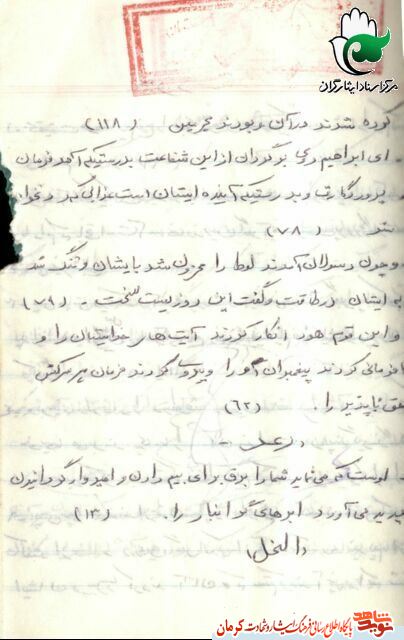 مرکز اسناد ایثارگران
کرده شدند در آن و بودند مجرمین (۱۱۸)
ای ابراهیم روی بگردان از این شفاعت بدرستیکه آمد فرمان
پروردگارت و بدرستیکه آینده ایشان است عذابی
(۷۸)
و چون رسولان آمدند لوط را محزون شد بایشان و تنگ شد
به ایشان در طاقت و گفت این روزیست سخت. (۷۹)
و این قوم هود انکار کردند آیت های خدایشان را و
فرمانی کردند پیغمبران او را و پیروی کردند فرمان هر سرکش
ناپذیر را. (۶۲)
(رعد)
اوست که می نماید شما را برق برای بیم دادن و امیدوار گردانیدن
پدید می آورد ابرهای گرانبار را. (۱۳)
(النحل)
نوید شاهد
پایگاه اطلاع رسانی فرهنگ ایثار و شهادت کرمان